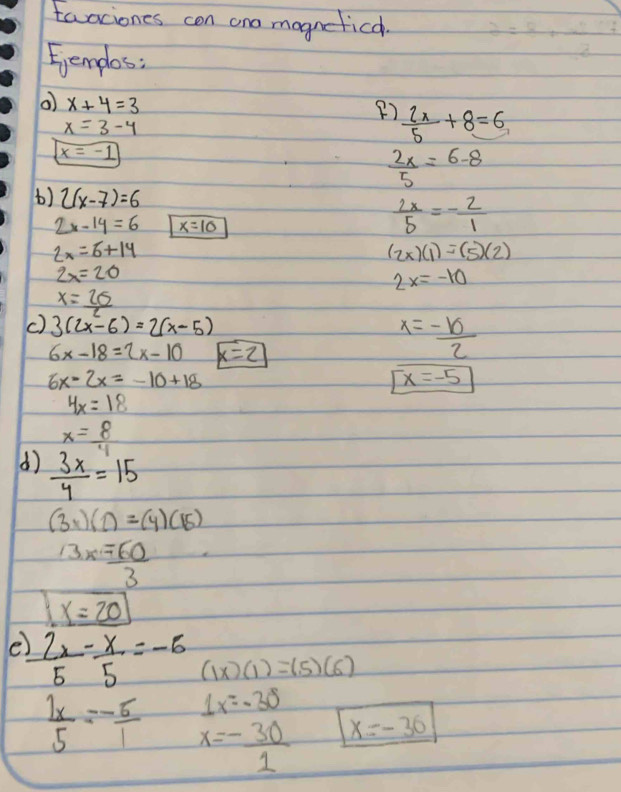 Ecuaciones con una magnetica.
Ejemplos:
a) x+4=3
x=3-4
x=-1
b) 2(x-7)=6
2x-14=6 x=10
2x=6+14
2x=20
x=20/2
c) 3(2x-6)=2(x-5)
6x-18=2x-10 x=2
6x-2x=-10+18
4x=18
x=8/4
d) 3x/4=15
(3x)(1)=(4)(15)
3x=60/3
x=20
e) 2x/5-x/5=-6
1x/5=-6/1
(1x)(1)=(5)(6)
1x=-30
x=-30/1
x=-30
f) 2x/5+8=6
2x/5=6-8
2x/5=-2/1
(2x)(1)=(5)(2)
2x=-10
x=-10/2
x=-5